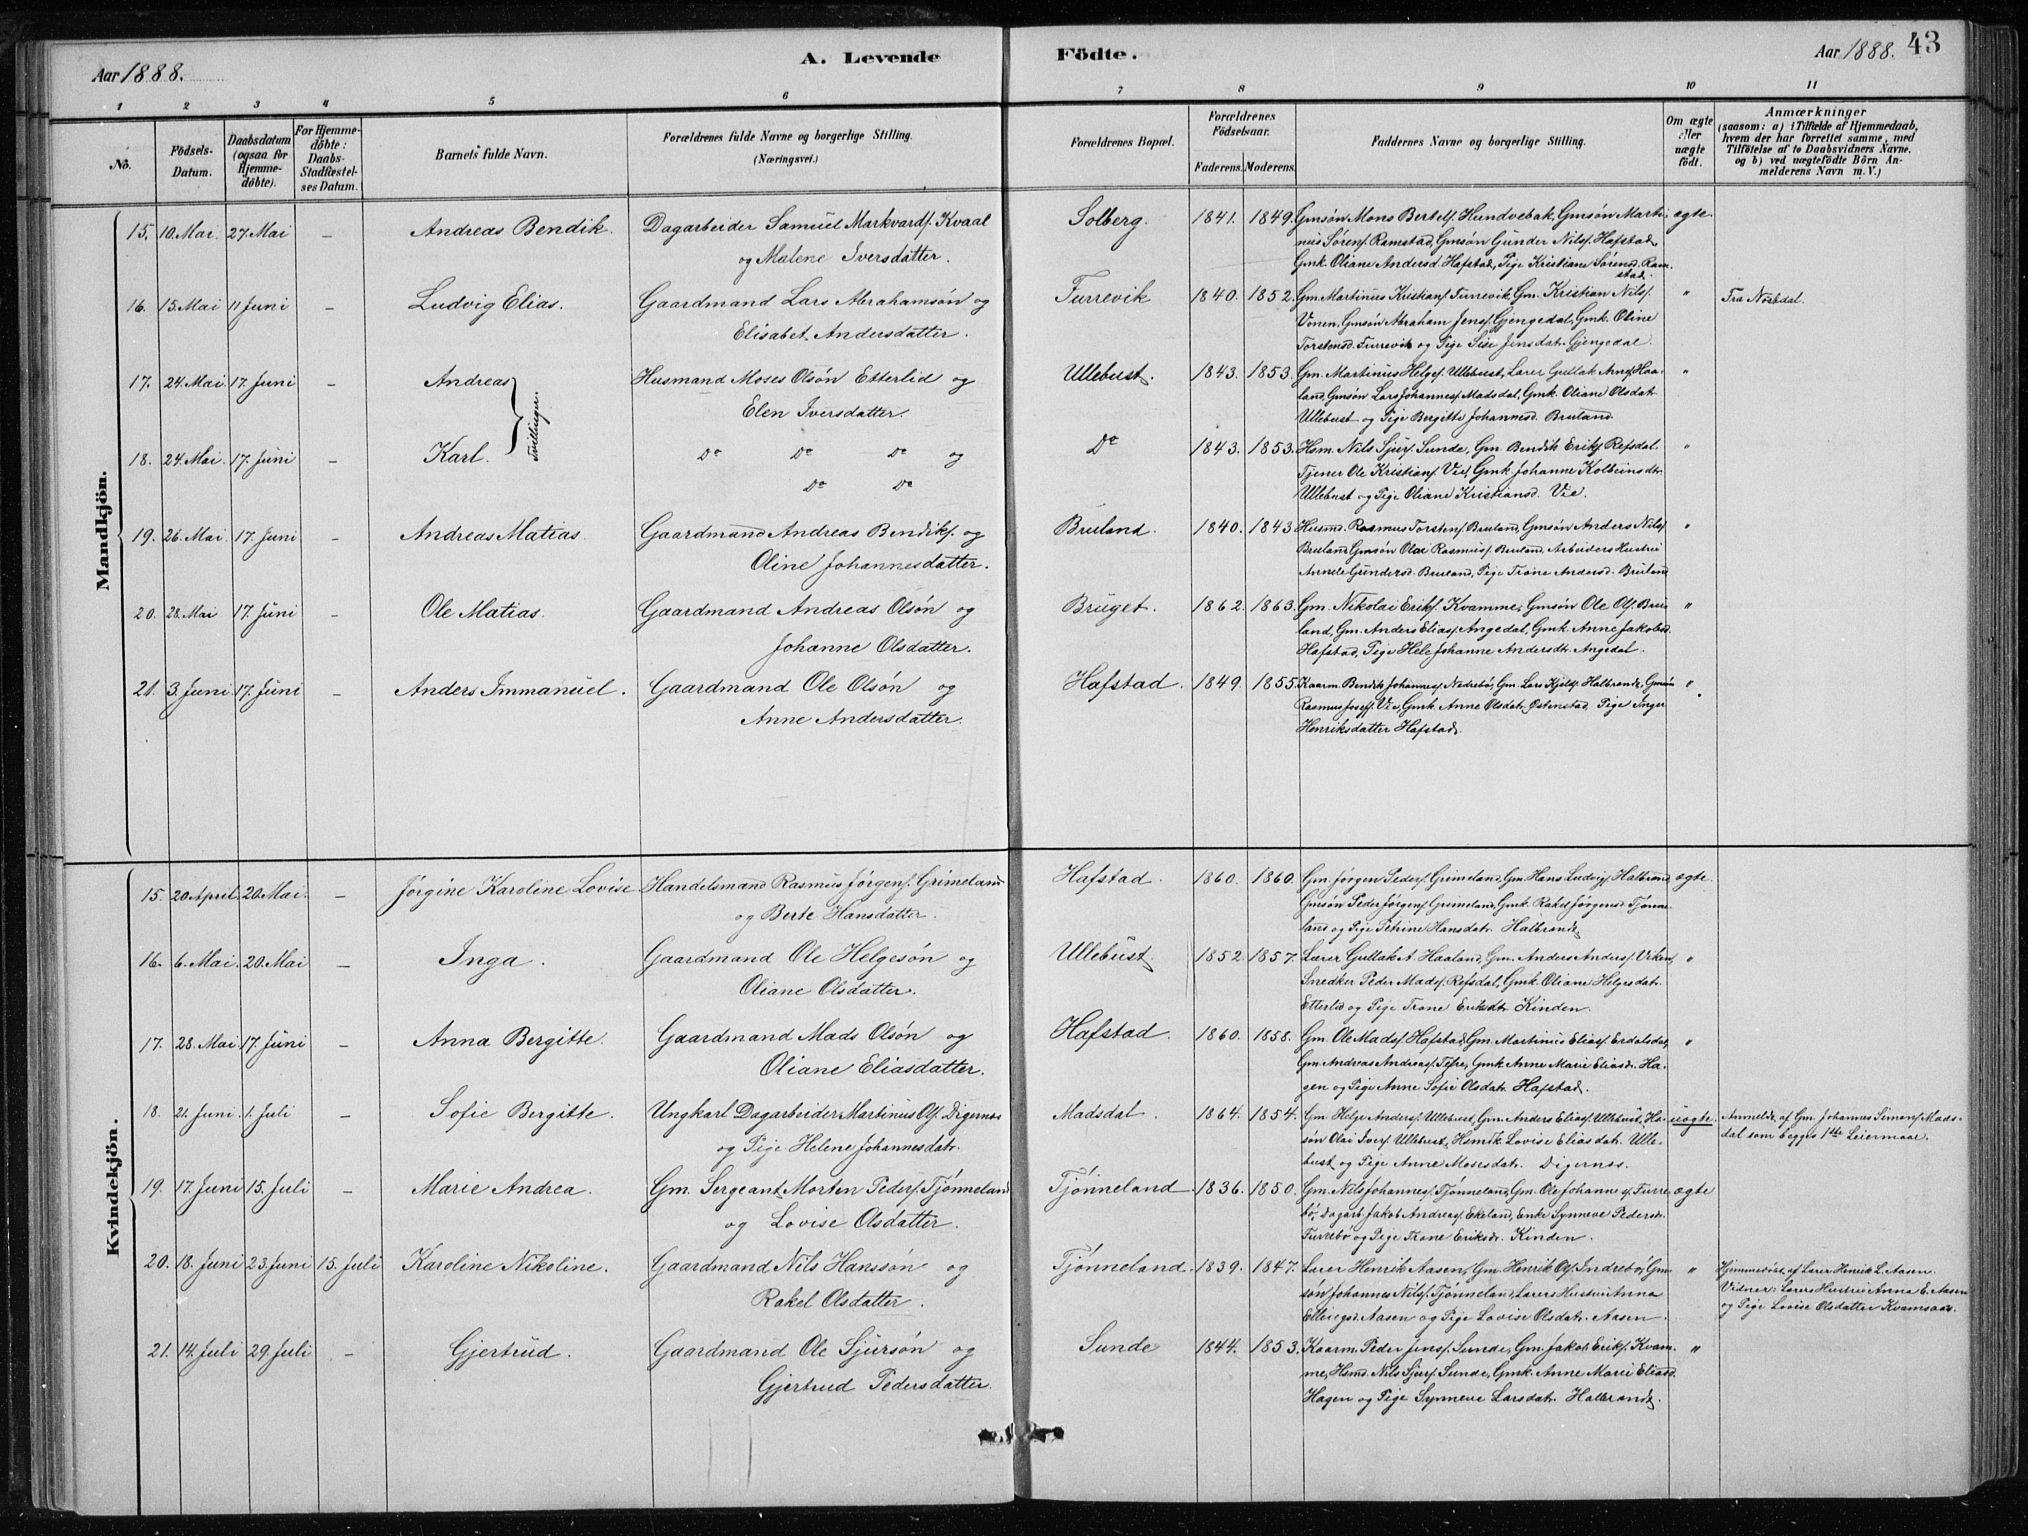 Aar 1888.
A. Levende
Födte.
Aar 1888. 43
1 2 3 4 5 6 7 8 9 10 11
No.
Födsels-Datum.
Daabsdatum (ogsaa for Hjemme-döbte).
For Hjemme-döbte: Daabs-Stadfæstel-ses Datum.
Barnets fulde Navn.
Forældrenes fulde Navne og borgerlige Stilling. (Næringsvei.)
Forældrenes Bopæl.
Forældrenes Födselsaar.
Faderens. Moderens.
Faddernes Navne og borgerlige Stilling.
Om ægte eller uægte födt.
Anmærkninger
(saasom: a) i Tilfælde af Hjemmedaab, hvem der har forrettet samme, med Tilföielse af to Daabsvidners Navne, og b) ved uægtefödte Börn Anmelderens Navn m. V.)
Mandkjön.
15. 10. Mai. 27. Mai – Andreas Bendik. Dagarbeider Samuel Markvards. Kvaal
og Malene Iversdatter.
Solberg. 1841. 1849. Gmsøn Mons Bertels. Hundvebak, Gmsøn Marti- ægte.
nus Sørens. Ramstad, Gmsøn Gunder Nils. Hafstad,
Gmk. Oliane Andersd. Hafstad, Pige Kristiane Sørensd. Ram-
stad.
16. 15. Mai 11 Juni – Ludvig Elias. Gaardmand Lars Abrahamsøn og
Elisabet Andersdatter.
Furrevik 1840. 1852. Gm. Martinus Kristians. Furrevik, Gm. Kristian Nils. " Fra Nordal.
Vonen, Gmsøn Abraham Jens. Gjengedal, Gmk. Oline
Torstensd. Furrevik og Pige Sise Jensdatr. Gjengedal.
17. 24. Mai 17. Juni – Andreas Husmand Moses Olsøn Etterlid og
Elen Iversdatter.
Tvillinger.
Ullebust. 1843. 1853. Gm. Martinus Helges. Ullebust, Lærer Gullak Arnes. Haa- "
land, Gmsøn Lars Johannes. Madsdal, Gmk. Oliane Olsdatr.
Ullebust og Pige Bergitte Johannesd. Bruland.
18. 24. Mai. 17. Juni – Karl. Do Do Do og
Do Do
Do 1843. 1853. Hsm. Nils Sjurs. Sunde, Gm. Bendik Eriks. Refsdal. "
Tjener Ole Kristians. Vie, Gmk. Johanne Kolbeinsdtr.
Ullebust og Pige Oliane Kristiansd. Vie.
19. 26. Mai. 17. Juni – Andreas Matias. Gaardmand Andreas Bendiks. og
Oline Johannesdatter.
Bruland. 1840. 1843. Husmd. Rasmus Torstens. Bruland, Gmsøn Anders Nils. "
Bruland, Gmsøn Olai Rasmus. Bruland, Arbeiders Hustru
Annele Gundersd. Bruland, Pige Trone Andersd. Bruland
20. 28. Mai 17. Juni – Ole Matias. Gaardmand Andreas Olsøn og
Johanne Olsdatter.
Bruget. 1862. 1863. Gm. Nikolai Eriks. Kvamme, Gmsøn Ole Ols. Bru- "
land, Gm. Anders Elias. Angedal, Gmk. Anne Jakobsd.
Hafstad, Pige Hele Johanne Andersdt. Angedal.
21. 3. Juni 17. Juni – Anders Immanuel. Gaardmand Ole Olsøn og
Anne Andersdatter.
Hafstad. 1849. 1855. Kaarm. Bendik Johannes. Nedrebø, Gm. Lars Kjels. Halbrand, Gmsøn "
Rasmus Josefs. Vie, Gmk. Anne Olsdatr. Østenstad, Pige Inger
Henriksdatter Hafstad.
Kvindekjön.
15. 20 April. 20. Mai. – Jørgine Karoline Lovise Handelsmand Rasmus Jørgens. Grimeland
og Berte Hansdatter.
Hafstad. 1860. 1860. Gm. Jørgen Peders. Grimeland, Gm. Hans Ludvigs. Halbrand, ægte.
Gmsøn Peder Jørgens. Grimeland, Gmk. Rakel Jørgensd. Tjønne-
land og Pige Petrine Hansdatr. Halbrand.
16. 6. Mai. 20. Mai – Inga. Gaardmand Ole Helgesøn og
Oliane Olsdatter.
Ullebust. 1852. 1857. Lærer Gullak A. Haaland, Gm. Anders Anders. Viken, "
Snedker Peder Mads. Refsdal, Gmk. Oliane Helgesdatr.
Etterlid og Pige Trone Eriksdtr. Kinden.
17. 28. Mai. 17. Juni – Anna Bergitte. Gaardmand Mads Olsøn og
Oliane Eliasdatter.
Hafstad 1860. 1858. Gm. Ole Mads. Hafstad, Gm. Martinus Elias. Erdalsdal, "
Gm. Andreas Andreas. Tefre, Gmk. Anne Marie Eliasd. Ha-
gen og Pige Anne Sofie Olsdatr. Hafstad.
18. 21. Juni. 1. Juli – Sofie Bergitte. Ungkarl Dagarbeider Martinus Ols. Digernæs
og Pige Helene Johannesdatr.
Madsdal. 1864. 1854. Gm. Helge Anders. Ullebust, Gm. Anders Elias. Ullebust, Ha- uægte. Anmeldt af Gm. Johannes Simons. Mads-
søn Olai Ivers. Ullebust, Hsmk. Lovise Eliasdatr. Ulle- dal som begges 1ste Leiermaal.
bust og Pige Anne Mosesdatr. Digernæs.
19. 17. Juni 15. Juli – Marie Andrea. Gm. Sergeant Morten Peders. Tjønneland
og Lovise Olsdatter.
Tjønneland 1836. 1850. Gm. Nils Johannes. Tjønneland, Gm. Ole Johannes. Furre- ægte
bø, Dagarb. Jakob Andreas. Ekeland, Enke Synneve Pedersd.
Furrebø og Pige Trone Eriksdr. Kinden.
20. 18. Juni 23. Juni 15. Juli Karoline Nikoline. Gaardmand Nils Hanssøn og
Rakel Olsdatter.
Tjønneland. 1839. 1847. Lærer Henrik Aasen, Gm. Henrik Ols. Indrebø, Gm- " Hjemmedøbt af Lærer Henrik L. Aasen.
søn Johannes Nils. Tjønneland, Lærers Hustru Anna Vidner: Lærers Hustru Anna E. Aasen
Ellingsd. Aasen og Pige Lovise Olsdatr. Aasen. og Pige Lovise Olsdatter Kvamsaas.
21. 14. Juli 29. Juli – Gjertrud. Gaardmand Ole Sjursøn og
Gjertrud Pedersdatter.
Sunde 1844. 1853. Kaarm. Peder Jens. Sunde, Gm. Jakob Eriks. Kvam- "
me, Hsmd. Nils Sjurs. Sunde, Gmk. Anne Marie Eliasd.
Hagen og Pige Synneve Larsdatr. Halbrand.